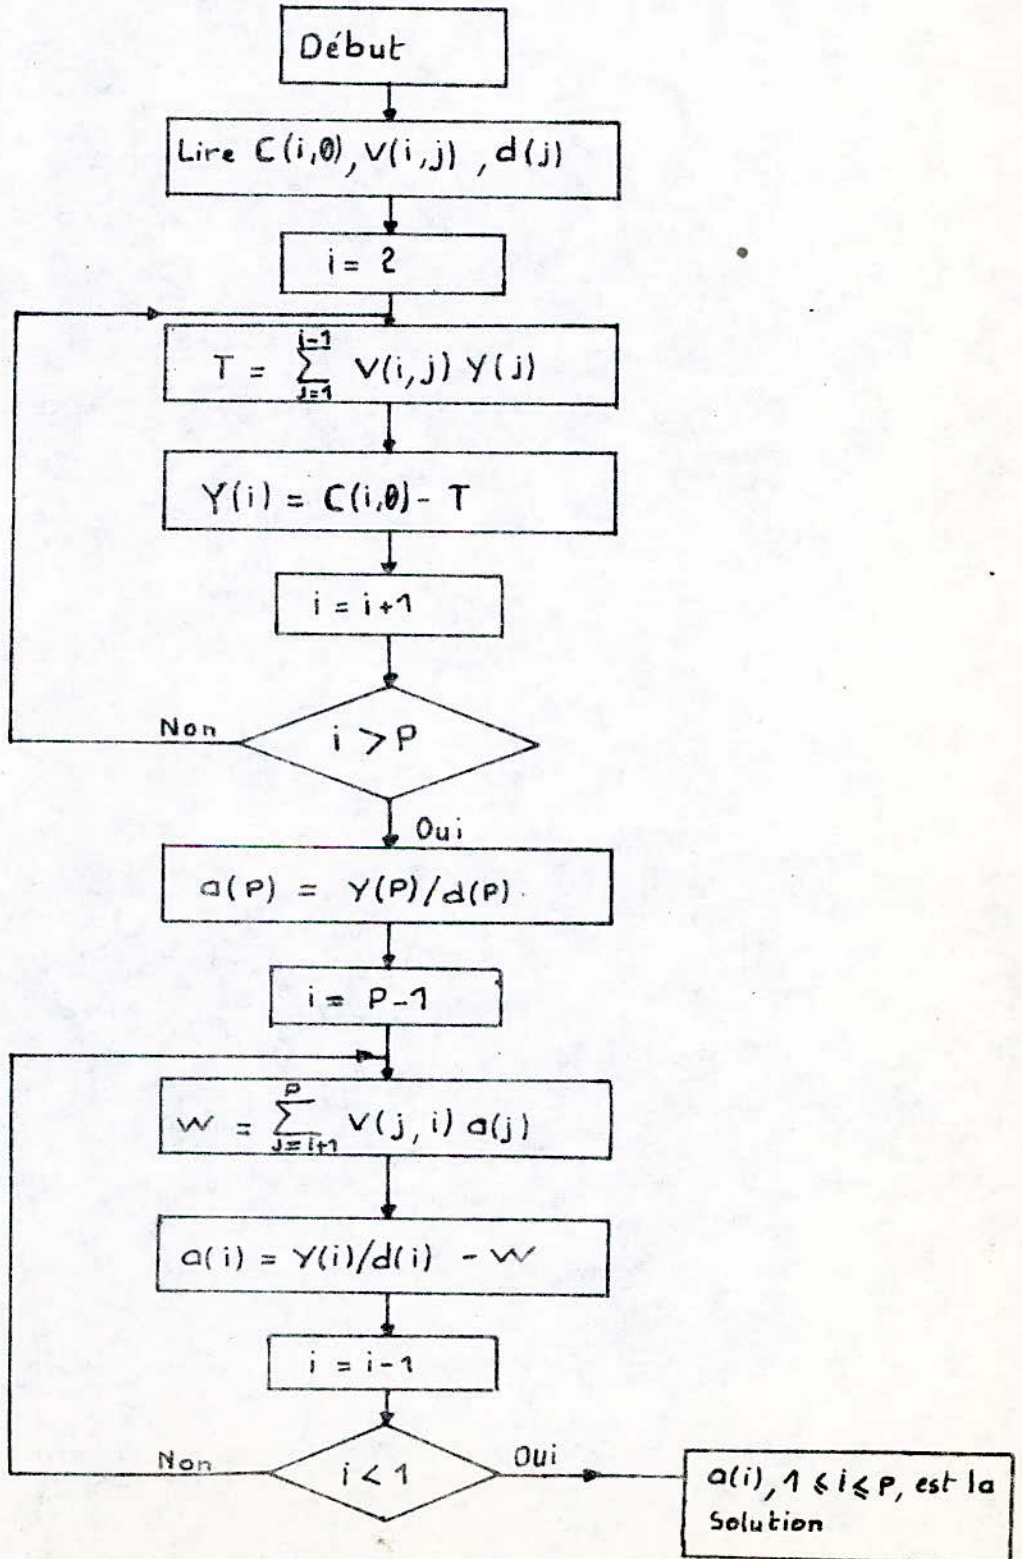 Début
Lire C(i,0), V(i,j) , d(j)
i = 2
T = ∑_{j=1}^{i-1} V(i,j) Y(j)
Y(i) = C(i,0) - T
i = i+1
Non
i > P
Oui
a(P) = Y(P)/d(P)
i = P-1
W = ∑_{j=i+1}^{P} V(j,i) a(j)
a(i) = Y(i)/d(i) - W
i = i-1
Non
i < 1
Oui
a(i), 1 ⩽ i ⩽ P, est la
Solution